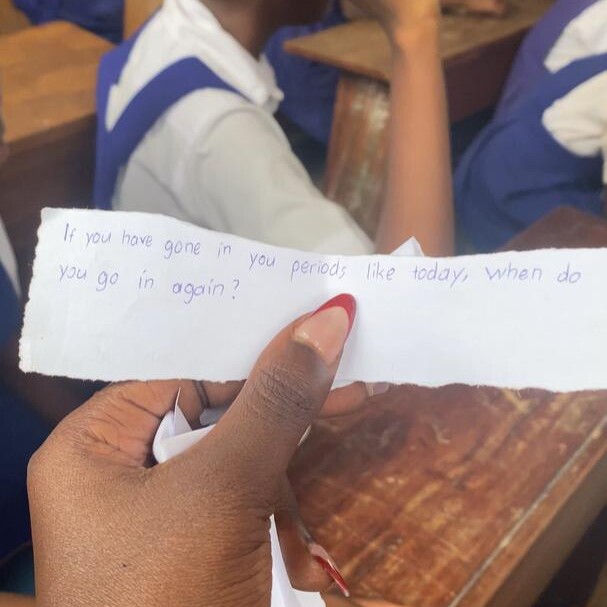 If you have gone in you periods like today, when do
you go in again?